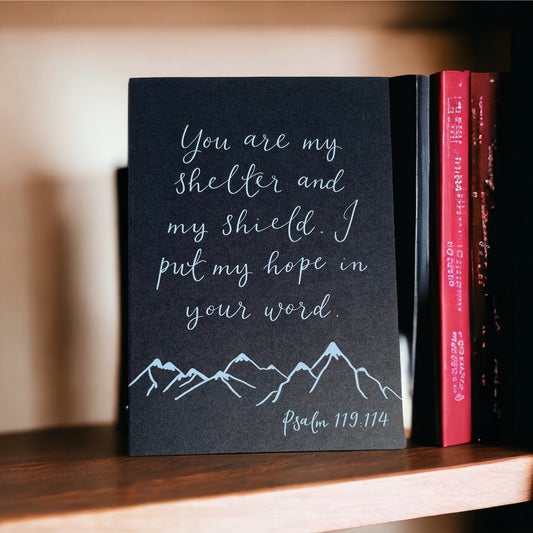 You are my
shelter and
my shield. I
put my hope in
your word.
Psalm 119.114